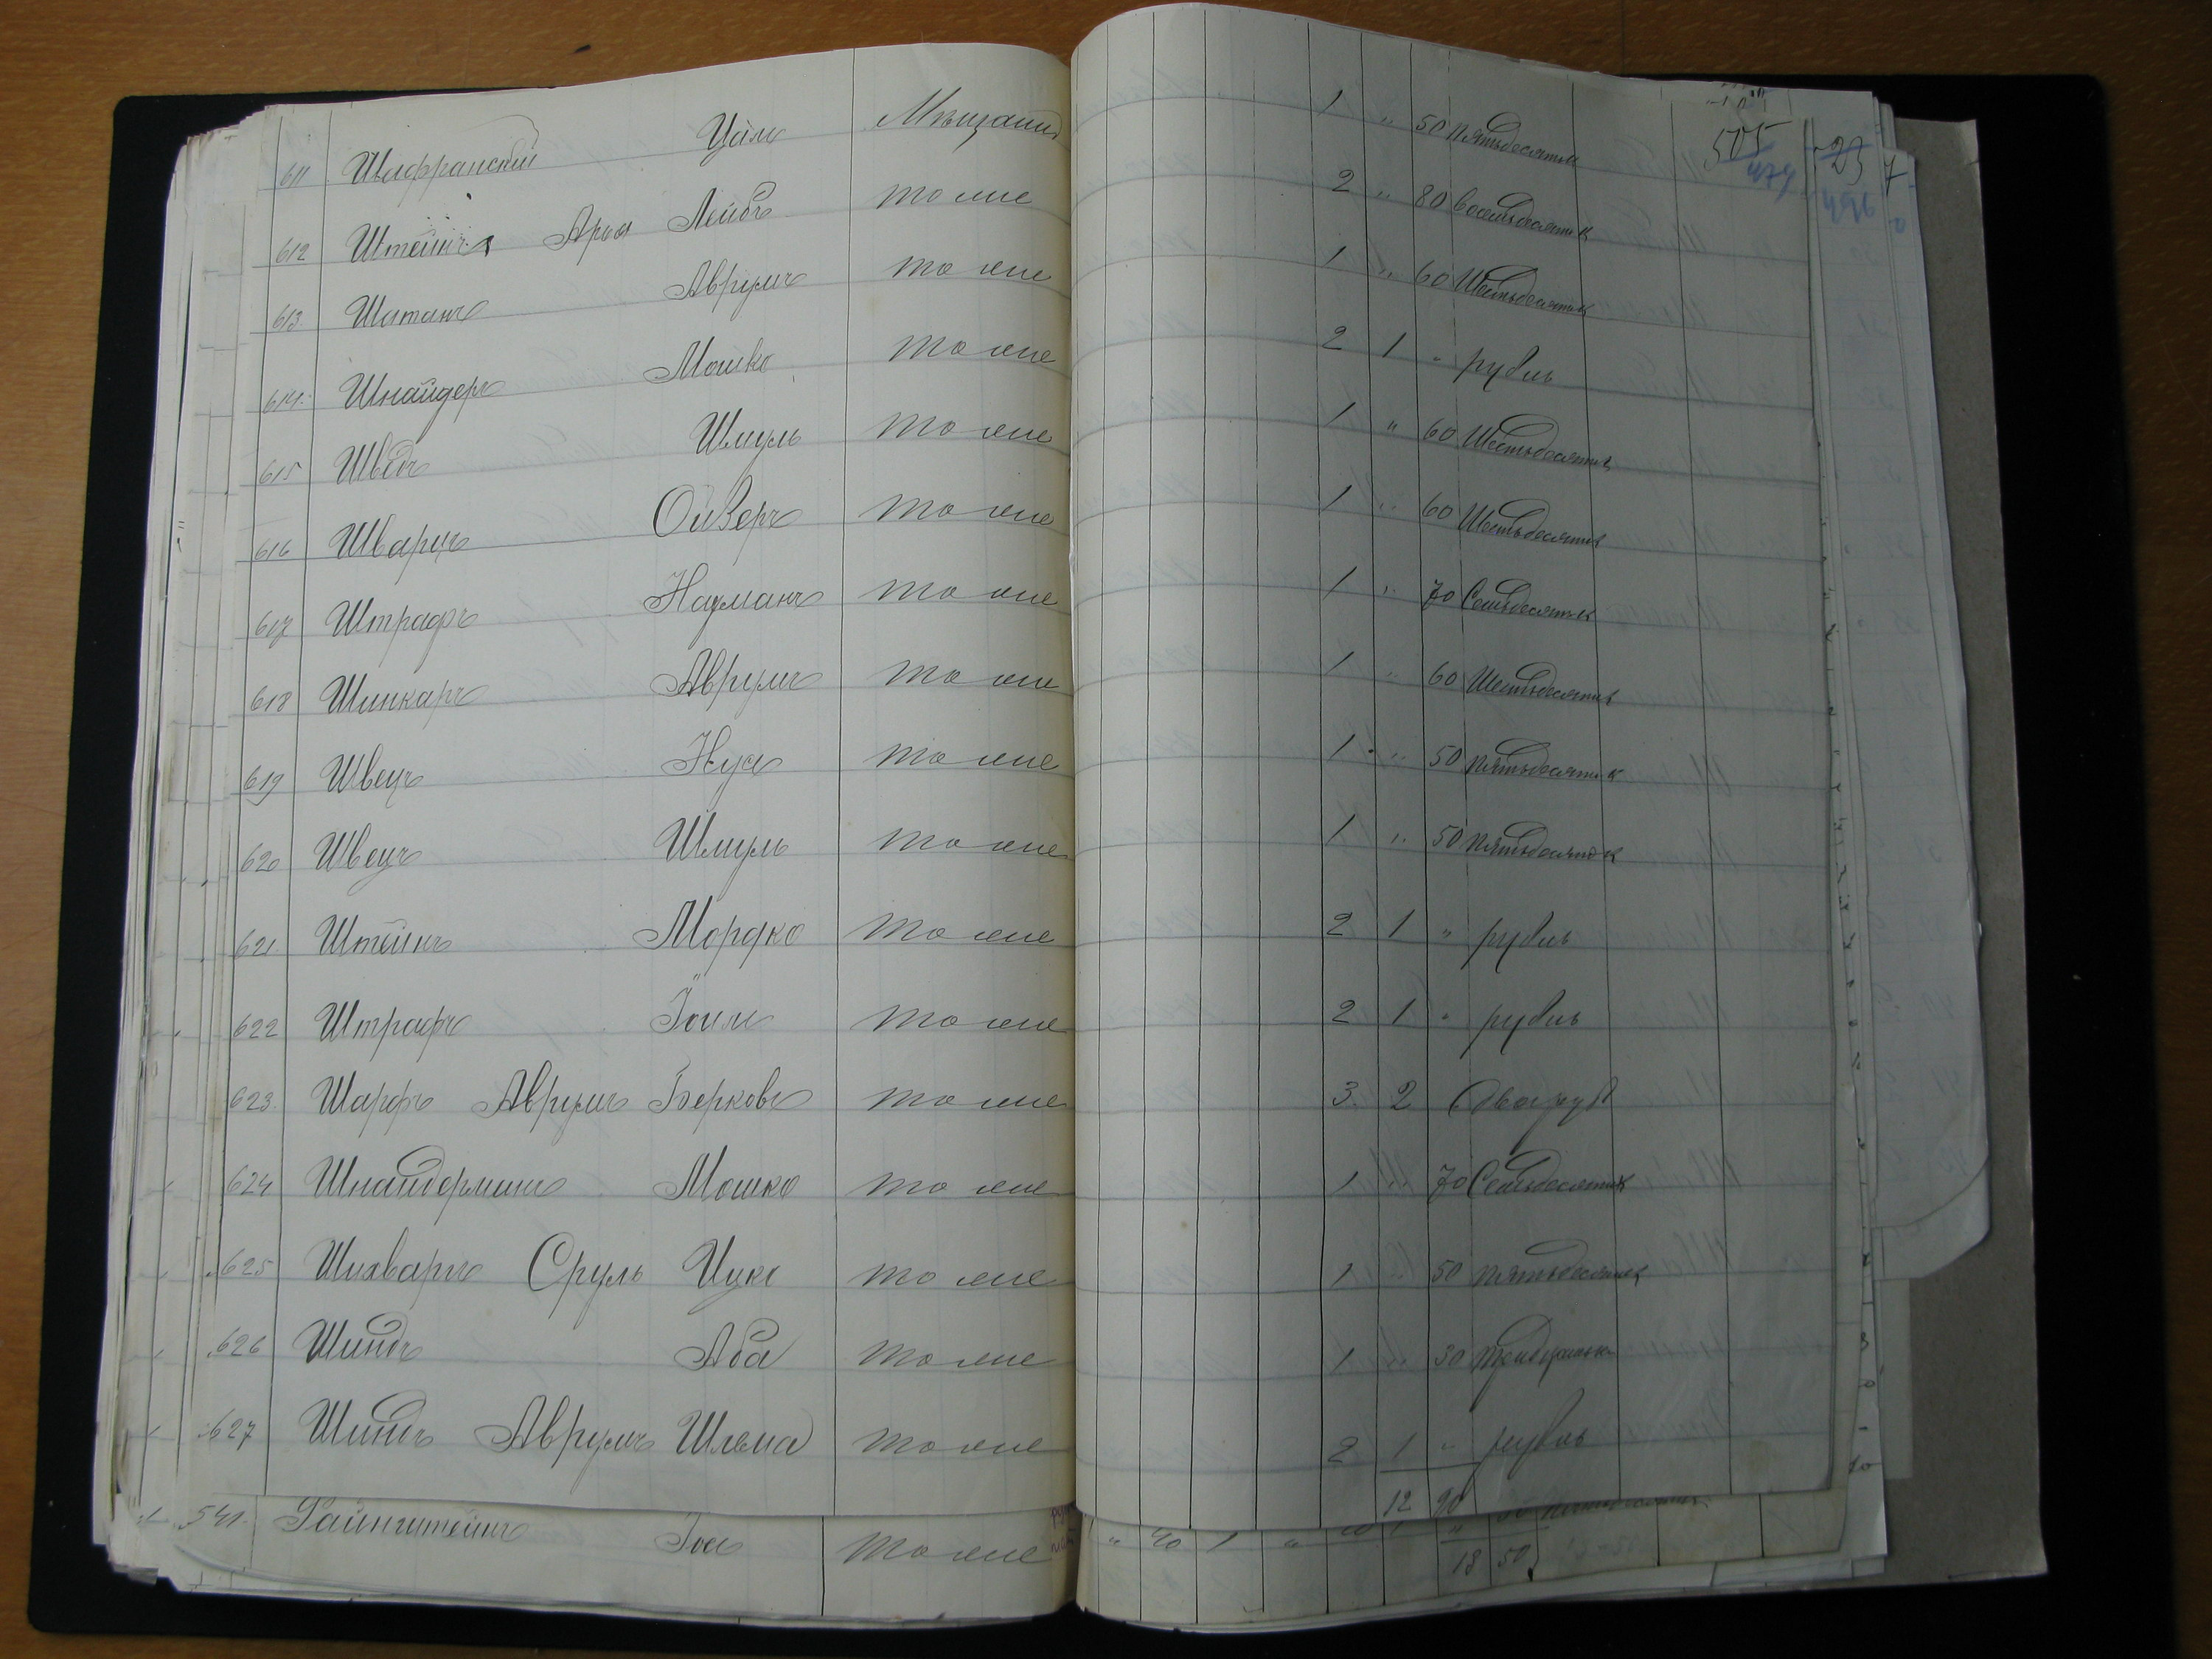 505
474
23
496
7
611 Шафранскій Цаль Мѣщанинъ 1 " 50 пятьдесятъ к
612 Штейнъ Арья Лейбъ то же 2 " 80 восемьдесятъ к
613 Шатанъ Аврумъ то же 1 " 60 Шестьдесятъ к
614 Шнайдеръ Мошко то же 2 1 " рубль
615 Шведъ Шмуль то же 1 " 60 Шестьдесятъ к
616 Шварцъ Ойзеръ то же 1 " 60 Шестьдесятъ к
617 Штрафъ Нахманъ то же 1 " 70 Семьдесятъ к
618 Шинкаръ Аврумъ то же 1 " 60 Шестьдесятъ к
619 Швецъ Нуа то же 1 " 50 пятьдесятъ к
620 Швецъ Шмуль то же 1 " 50 пятьдесятъ к
621 Штейнъ Мордко то же 2 1 " рубль
622 Штрафъ Іоил то же 2 1 " рубль
623 Шарфъ Аврумъ Берковъ то же 3 2 два руб
624 Шнайдерманъ Мошко то же 1 " 70 Семьдесятъ к
625 Шихваргъ Сруль Ицко то же 1 " 50 пятьдесятъ к
626 Шиндъ Аба то же 1 " 30 тридцать к
627 Шиндъ Аврумъ Шлема то же 2 1 " рубль
12 90
541 Файнштейнъ то же " 40 1 "
18 50